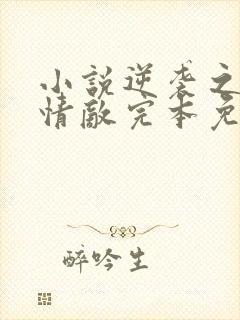 小說逆袭之
情敵完本免
醉吟生